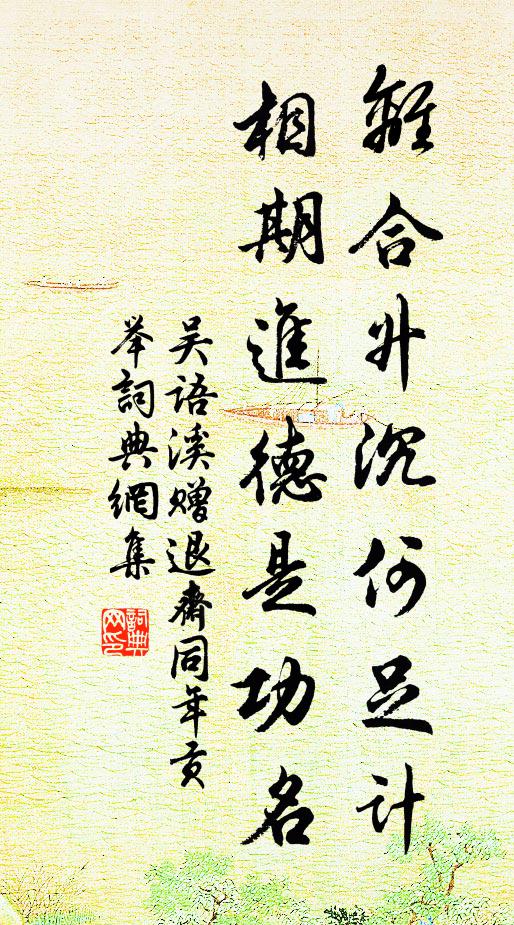 離合升沉何足計
相期進德是功名
吴語溪贈退齋同年貢
举詞典網集
詞典網印